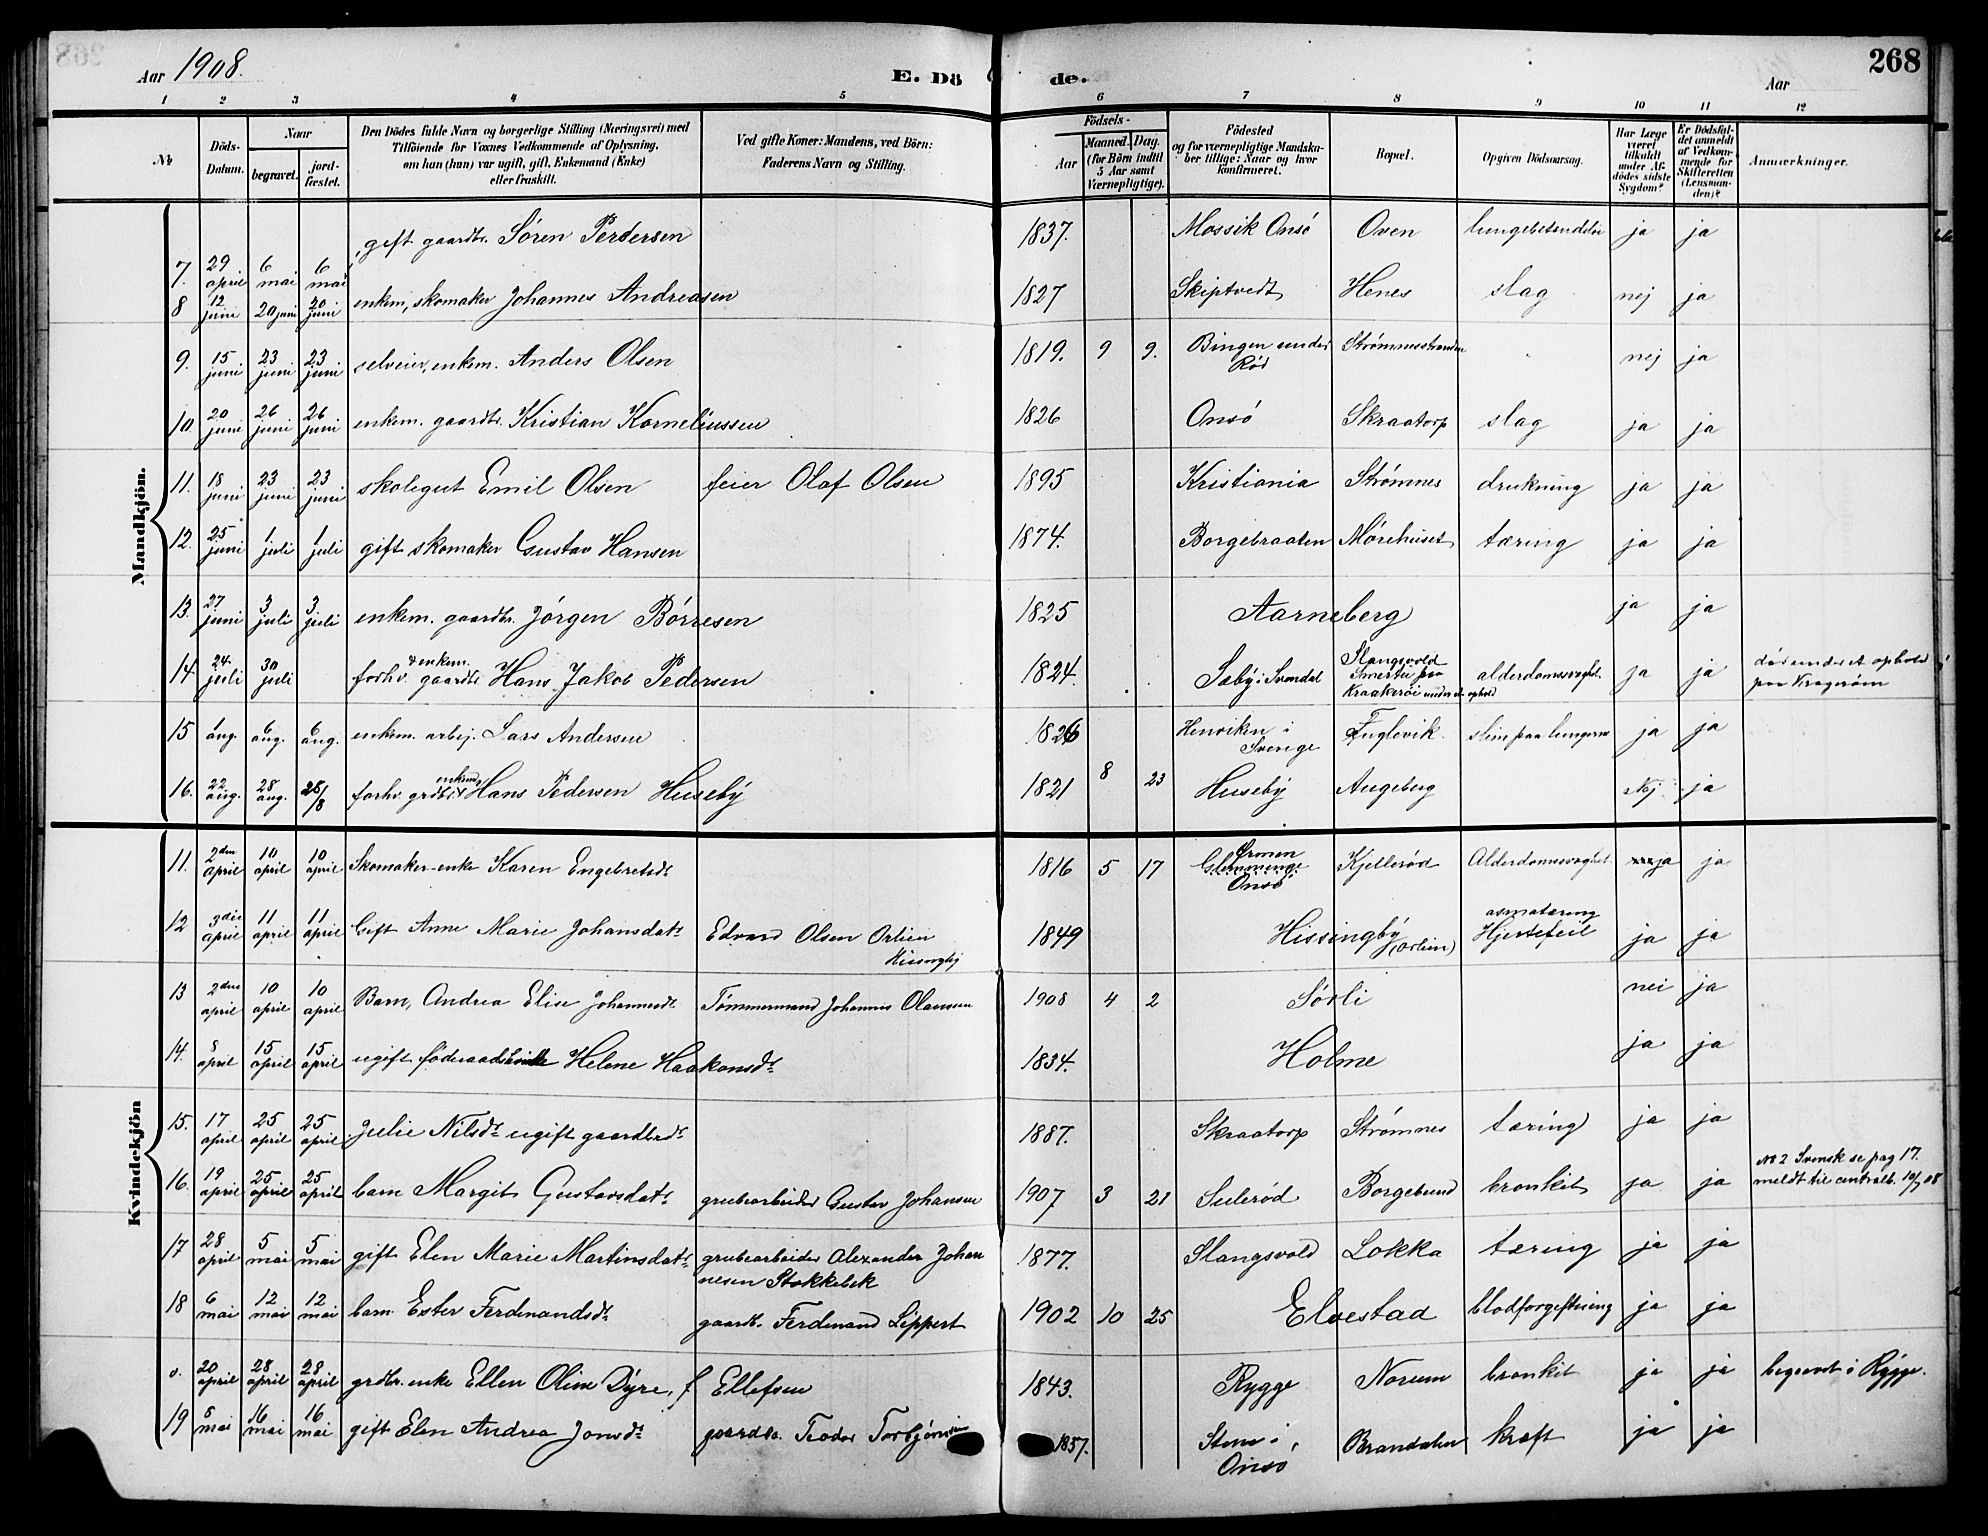 Aar 1908. E. Dö de. Aar 268
1 2 3 4 5 6 7 8 9 10 11 12
No Döds-Datum. Naar begravet. jord-fæstet. Den Dödes fulde Navn og borgerlige Stilling (Næringsvei) med Tilföiende for Voxnes Vedkommende af Oplysning. om han (hun) var ugift, gift, Enkemand (Enke) eller fraskilt. Ved gifte Koner: Mandens, ved Börn: Faderens Navn og Stilling. Födsels- Aar Maaned. Dag. (for Börn indtil 5 Aar samt Værnepligtige). Födested og for værnepligtige Mandska-ber tillige: Naar og hvor konfirmeret. Bopæl. Opgiven Dödsaarsag. Har Læge været tilkaldt under Af-dödes sidste Sygdom? Er Dödsfal-det anmeldt af Vedkom-mende for Skifteretten (Lensman-den)? Anmærkninger.
Mandkjön.
7. 29 april 6 mai 6 mai gift gaardbr. Sören Pedersen 1837. Mossik Onsö Oven lungebetendelse ja ja
8 12 juni 20 juni 20 juni enkem, skomaker Johannes Andreasen 1827 Skiptvedt Henes slag nej ja
9. 15 juni 23 juni 23 juni selveier, enkem. Anders Olsen 1819. 9 9. Bingen under Röd Strømnesstranden " nej ja
10 20 juni 26 juni 26 juni enkem. gaardbr. Kristian Korneliussen 1826 Onsö Skraatorp slag ja ja
11. 18 juni 23 juni 23 juni skolegut Emil Olsen feier Olaf Olsen 1895 Kristiania Strømnes drukning ja ja
12. 25 juni 1 juli 1 juli gift skomaker Gustav Hansen 1874. Borgebraaten Mörehuset tæring ja ja
13. 27 juni 3 juli 3 juli enkem. gaardbr. Jörgen Börresen 1825 Aarneberg ja ja
14. 24 juli 30 juli forhv. & enkem. gaardbr Hans Jakob Pedersen 1824. Saby i Svindal Slangsvold Smertu paa Kraakeröi under et ophold alderdomssvaghet. ja ja död under et ophold paa Kragerøen
15 1 aug. 6 aug. 6 aug. enkem. arbej. Lars Andersen 1826 Henviken i Sverige Fuglevik. slim paa lungerne ja ja
16. 22 aug. 28 aug. 28/8 forhv. grdbr. enkem. Hans Pedersen Huseby 1821 8 23 Huseby Augeberg Nej ja
Kvindekjön
11. 2den april 10 april 10 april Skomaker-enke Karen Engebretsdt 1816 5 17 Glemminge Onsö Kjelleröd Alderdomssvaghet ja ja
12 3die april 11 april 11 april Gift Anne Marie Johansdatr Edvard Olsen Orlien Hissingby 1849 Hissingby (Orlien) asmatæring Hjertefeil ja ja
13 2den april 10 april 10 april Barn, Andrea Elise Johannesdt. Tömmermand Johannes Olaussen 1908 4 2 Sörli nei ja
14. 8 april 15 april 15 april ugift föderaads Helene Haakonsdt. 1834. Holme ja ja
15. 17 april 25 april 25 april Julie Nilsdt. ugift gaardbrdt. 1887. Skraatorp Strømnes tæring ja ja
16. 19 april 25 april 25 april barn Margit Gustavsdatr grubearbeider Gustav Johansen 1907 3 21 Suleröd Borgebund bronkit ja ja No 2 Svensk se pag 17. meldt til centralb. 10/7 08
17 28 april 5 mai 5 mai gift Elen Marie Martinsdatr grubearbeider Alexander Johan nesen Stokkebæk 1877. Slangsvold Lokka tæring ja ja
18 6 mai 12 mai 12 mai barn Ester Ferdinandsdt. gaardb. Ferdinand Lippert 1902 10 25 Elvestad blodforgiftning ja ja
0. 20 april 28 april 28 april grdbr. enke Ellen Oline Dyre, f Ellefsen 1843. Rygge Norum bronkit ja ja begravet i Rygge.
19 8 mai 16 mai 16 mai gift Elen Andrea Jonsdt. gaardbr. Teodor Torbjörnsen 1857. Sten i Onsö Brandalen kræft ja ja